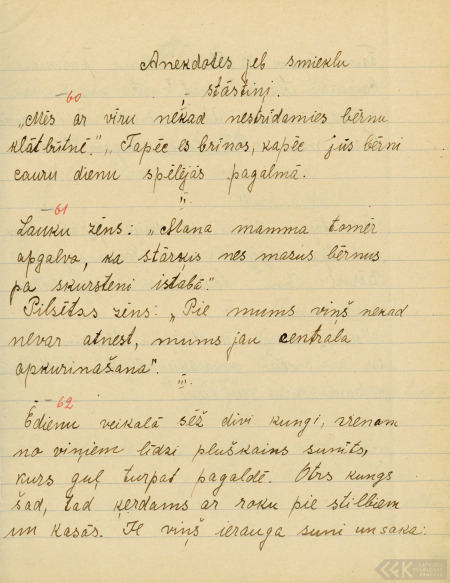 Anekdotes jeb smieklu
stāstiņi.
60 I.
„Mēs ar vīru nekad nestrīdamies bērnu
klātbūtnē.” „Tapēc es brīnos, kapēc jūs bērni
cauru dienu spēlējās pagalmā.
II.
61
Lauku zēns: „Mana mamma tomēr
apgalvo, ka stārķis nes mazus bērnus
pa skursteni istabā.”
Pilsētas zēns: „Pie mums viņš nekad
nevar atnest, mums jau centrāla
apkurināšana”.
III.
62
Ēdienu veikalā sēž divi kungi, vienam
no viņiem līdzi pluškains sunīts,
kurš guļ turpat pagaldē. Otrs kungs
šad, tad ķerdams ar roku pie stilbiem
un kasās. Te viņš ierauga suni un saka: